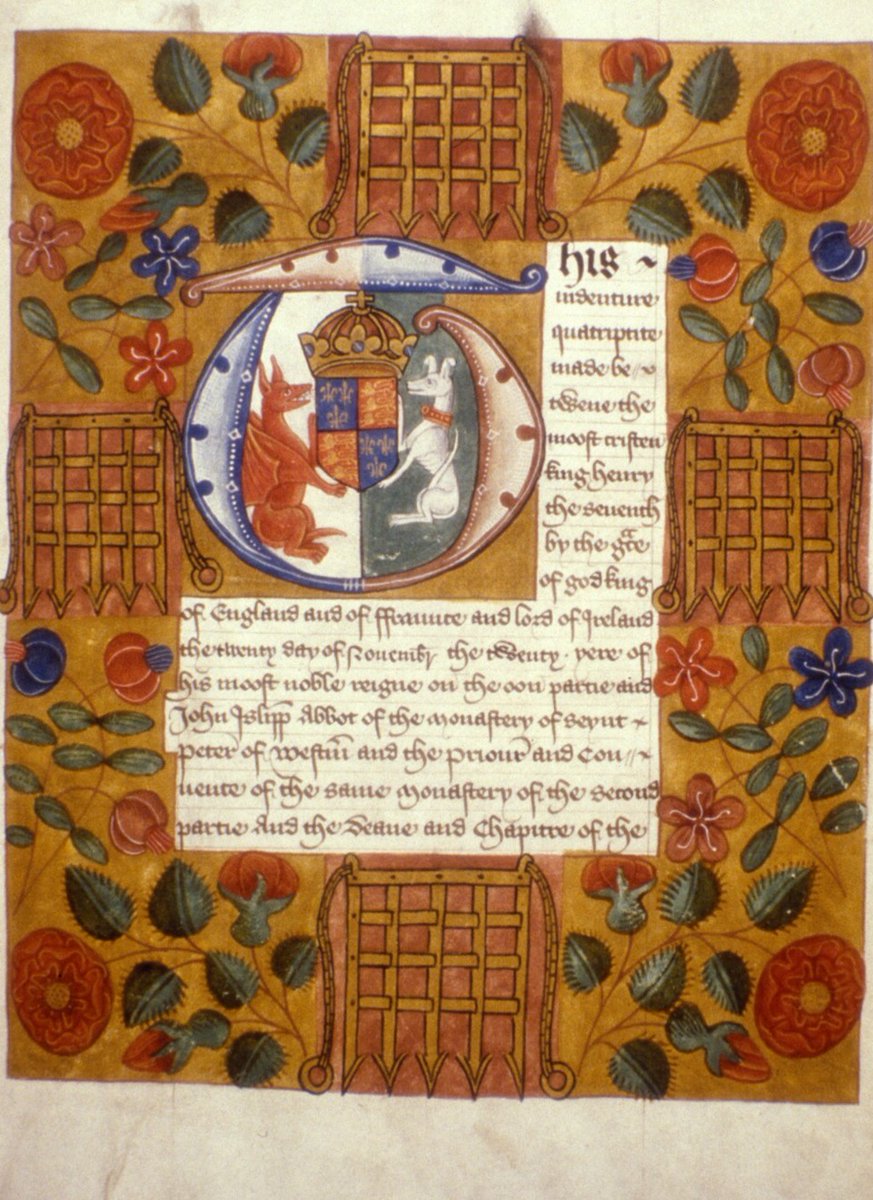 This ~
indenture
quatriptite
made be-
twene the
moost cristen
king henry
the seventh
by the gce
of god king
of England and of ffraunce and lord of Ireland
the twenty day of Novembr the twenty yere of
his moost noble reigne on the oon partie and
John Islipp Abbot of the monastery of seynt
peter of westm and the priour and Con-
vente of the same monastery of the second
partie And the Deane and Chapitre of the